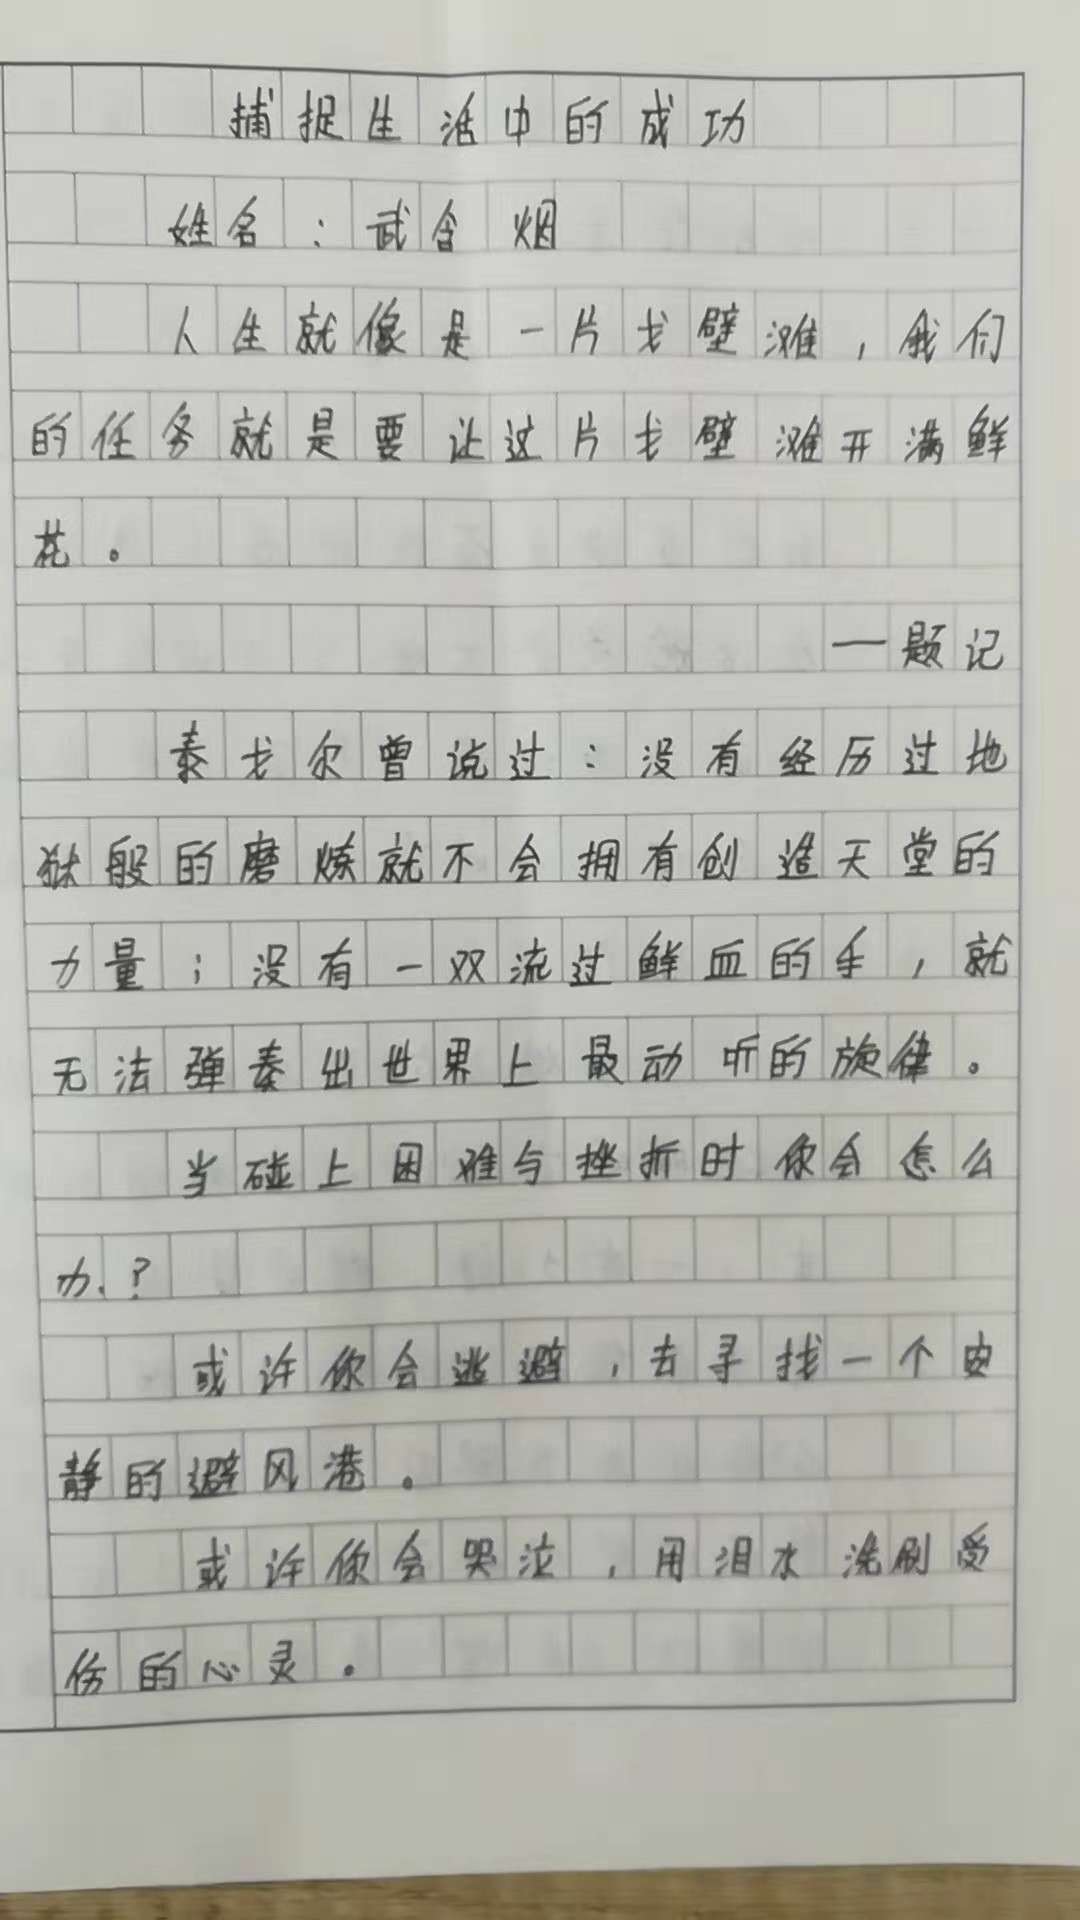 捕捉生活中的成功
姓名：武含烟
人生就像是一片戈壁滩，我们
的任务就是要让这片戈壁滩开满鲜
花。
——题记
泰戈尔曾说过：没有经历过地
狱般的磨炼就不会拥有创造天堂的
力量；没有一双流过鲜血的手，就
无法弹奏出世界上最动听的旋律。
当碰上困难与挫折时你会怎么
办？
或许你会逃避，去寻找一个安
静的避风港。
或许你会哭泣，用泪水洗刷受
伤的心灵。